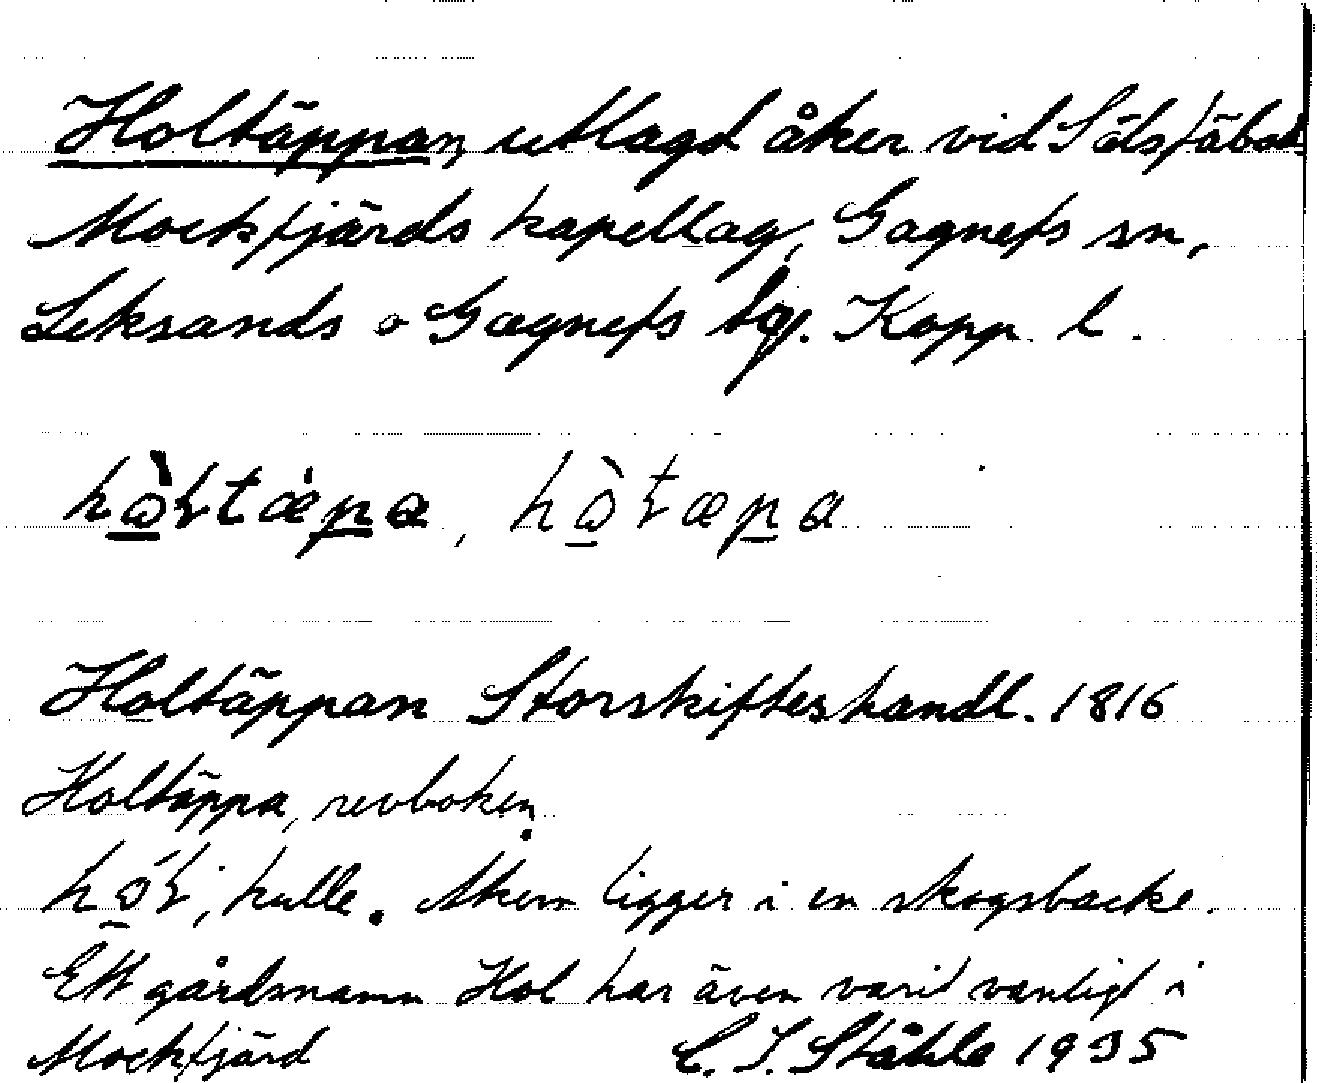 Holtäppan, utlagd åker vid Sälsfäbod.
Mockfjärds kapellag, Gagnefs sn,
Leksands o Gagnefs tg. Kopp. l.
Holtäppan Storskifteshandl. 1816
Holtäppa, revboken.
kulle. Åkern ligger i en skogsbacke.
Ett gårdsnamn Hol har även varit vanligt i
Mockfjärd C. I. Ståhle 1935